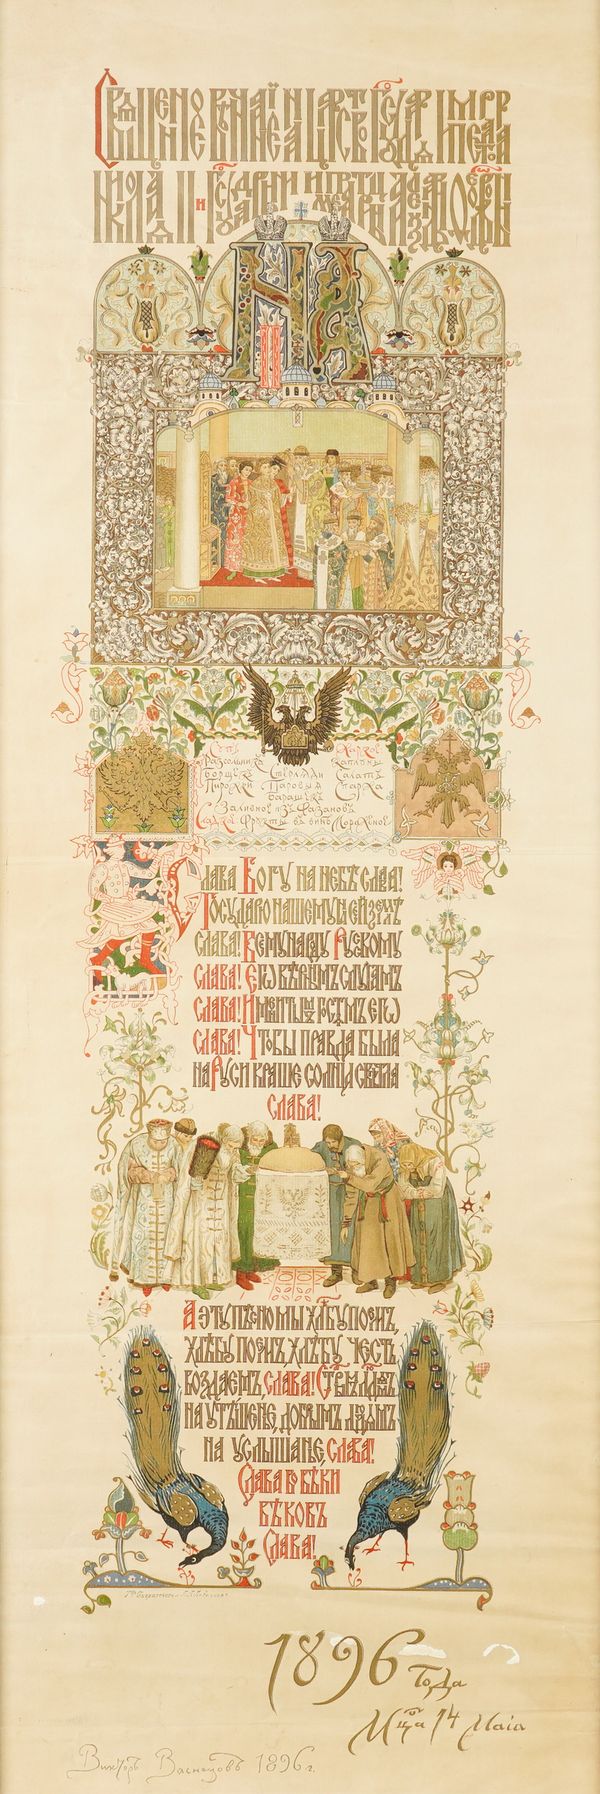 Священное Вѣнчаніе на Царство Государя Императора
Николая II и Государыни Императрицы Александры Ѳеодоровны
Н А
Супъ Жаркое
Разсольникъ Каплуны
Борщекъ Стерляди Салатъ
Пирожки Паровыя Спаржа
Барашекъ
Заливное изъ Фазановъ
Сладкое Фрукты въ винѣ Мороженое
Слава Богу на небѣ слава!
Государю нашему на сей землѣ
слава! Всему народу Русскому
слава! Его вѣрнымъ слугамъ
слава! Именитымъ гостямъ его
слава! Чтобы правда была
на Руси краше солнца свѣтла
слава!
А эту пѣсню мы хлѣбу поемъ,
хлѣбу поемъ, хлѣбу честь
воздаемъ, слава! Старымъ людямъ
на утѣшенье, добрымъ людямъ
на услышанье, слава!
Слава во вѣки
вѣковъ
Слава!
1896 года
Мца 14 Маіа
Викторъ Васнецовъ 1896 г.